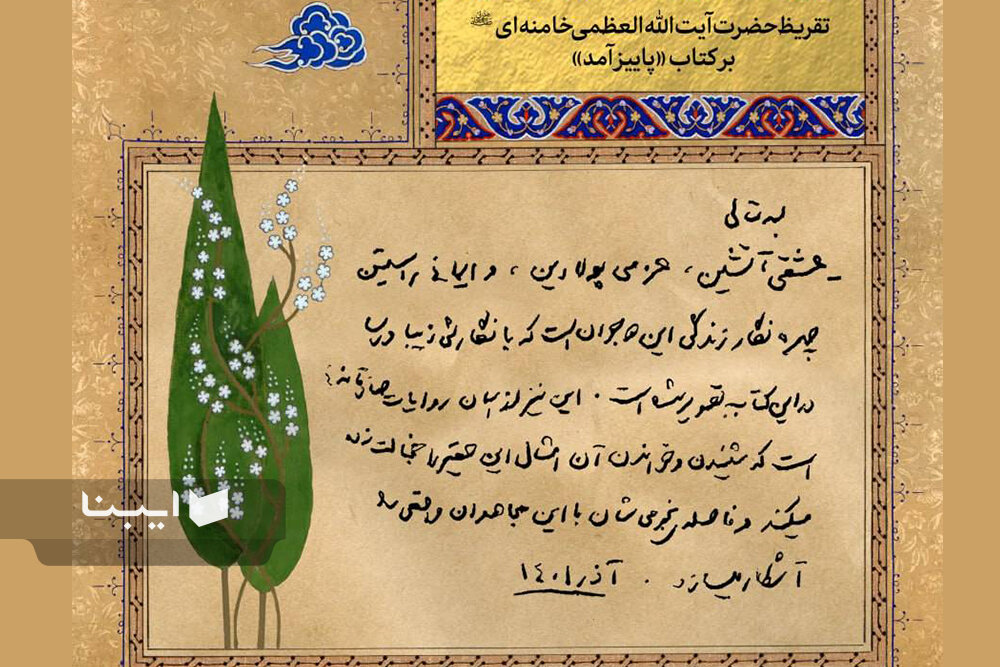 تقریظ حضرت آیت الله العظمی خامنه‌ای
بر کتاب «پاییز آمد»
بسمه تعالی
ـ عشقی آتشین، عزمی پولادین، و ایمانی راستین
چهره نگار زندگی این دو جوان است که با نگارشی زیبا و رسا
در این کتاب به تصویر شده است. این نیز از آسان روایات صادقانه‌ئی
است که شنیدن و خواندن آن امثال این حقیر را خجالت زده
میکند و فاصله‌ی نجومی شان با این مجاهدان واقعی را
آشکار میسازد. آذر ۱۴۰۱
ایبنا